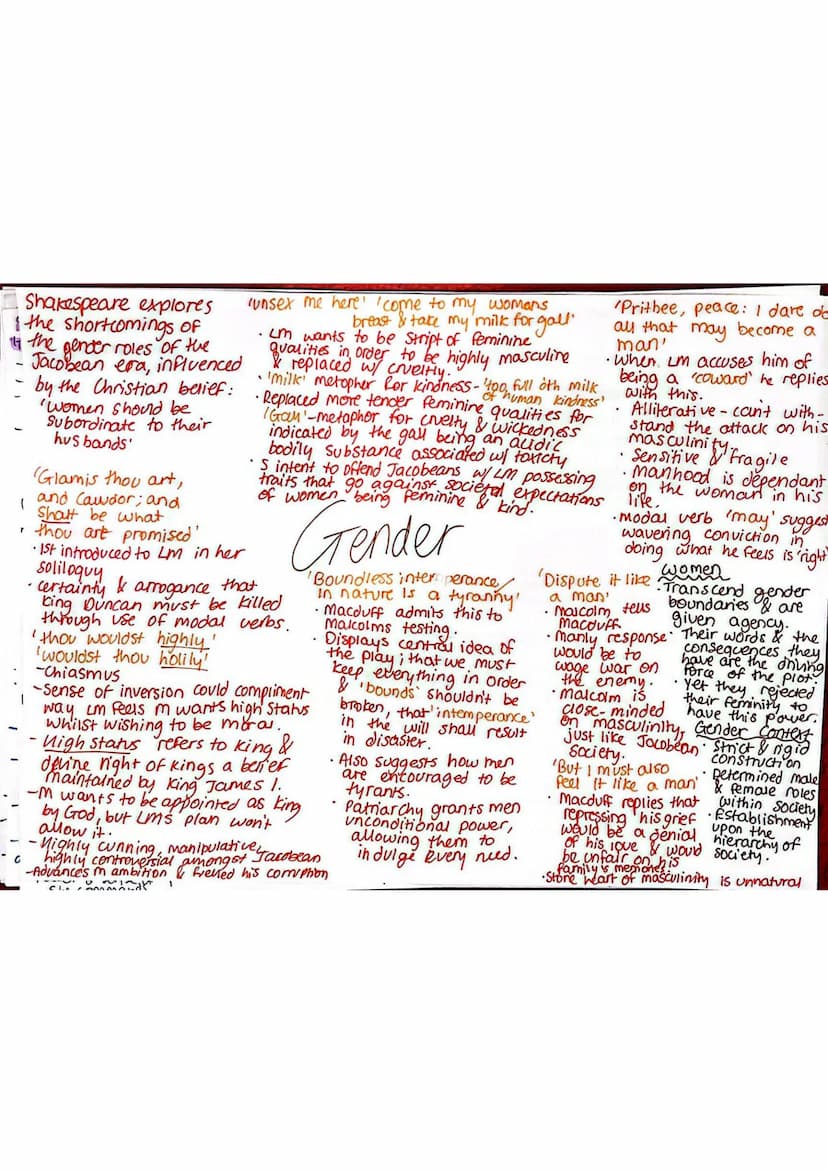 Shakespeare explores
the shortcomings of
the gender roles of the
Jacobean era, influenced
by the Christian belief:
'women should be
subordinate to their
husbands'
'Glamis thou art,
and Cawdor; and
shalt be what
thou art promised'
· 1st introduced to LM in her
soliloquy
· certainty & arrogance that
King Duncan must be killed
through use of modal verbs.
'thou wouldst highly,'
'wouldst thou holily'
- Chiasmus
- Sense of inversion could compliment
way LM feels M wants high status
whilst wishing to be moral.
- High status refers to King &
devine right of kings a belief
maintained by King James 1.
- M wants to be appointed as King
by God, but LMs plan won't
allow it.
- Highly cunning, manipulative,
highly controversial amongst Jacobean
- Advances M ambition & fuelled his corruption
'unsex me here' 'come to my womans
breast & take my milk for gall'
· LM wants to be stript of feminine
qualities in order to be highly masculine
& replaced w/ cruelty.
· 'milk' metopher for kindness - 'too full oth milk
of human kindness'
· Replaced more tender feminine qualities for
'Gall' - metaphor for cruelty & wickedness
indicated by the gall being an acidic
bodily substance associated w/ toxicity
· S intent to offend Jacobeans w/ LM possessing
traits that go against societal expectations
of women being feminine & kind.
Gender
'Boundless intemperance/
in nature is a tyranny'
· Macduff admits this to
Malcolms testing.
· Displays central idea of
the play; that we must
keep everything in order
& 'bounds' shouldn't be
broken, that 'intemperance'
in the will shall result
in disaster.
· Also suggests how men
are encouraged to be
tyrants.
· Patriarchy grants men
unconditional power,
allowing them to
indulge every need.
'Prithee, peace: I dare do
all that may become a
man'
· When LM accuses him of
being a 'coward' he replies
with this.
· Alliterative - can't with-
stand the attack on his
masculinity.
· Sensitive & fragile
· Manhood is dependant
on the woman in his
life.
· Modal verb 'may' suggest
wavering conviction in
doing what he feels is 'right'
'Dispute it like
a man'
· Malcolm tells
Macduff.
· Manly response
would be to
wage war on
the enemy.
· Malcolm is
close-minded
on masculinity,
just like Jacobean
society.
'But I must also
feel it like a man'
· Macduff replies that
repressing his grief
would be a denial
of his love & would
be unfair on his
family's memories.
· Stone heart of masculinity is unnatural
Women
· Transcend gender
boundaries & are
given agency.
· Their words & the
consequences they
have are the driving
force of the plot.
· Yet they rejected
their femininity to
have this power.
Gender Context
· Strict & rigid
construction
· Determined male
& female roles
within society
· Establishment
upon the
hierarchy of
society.